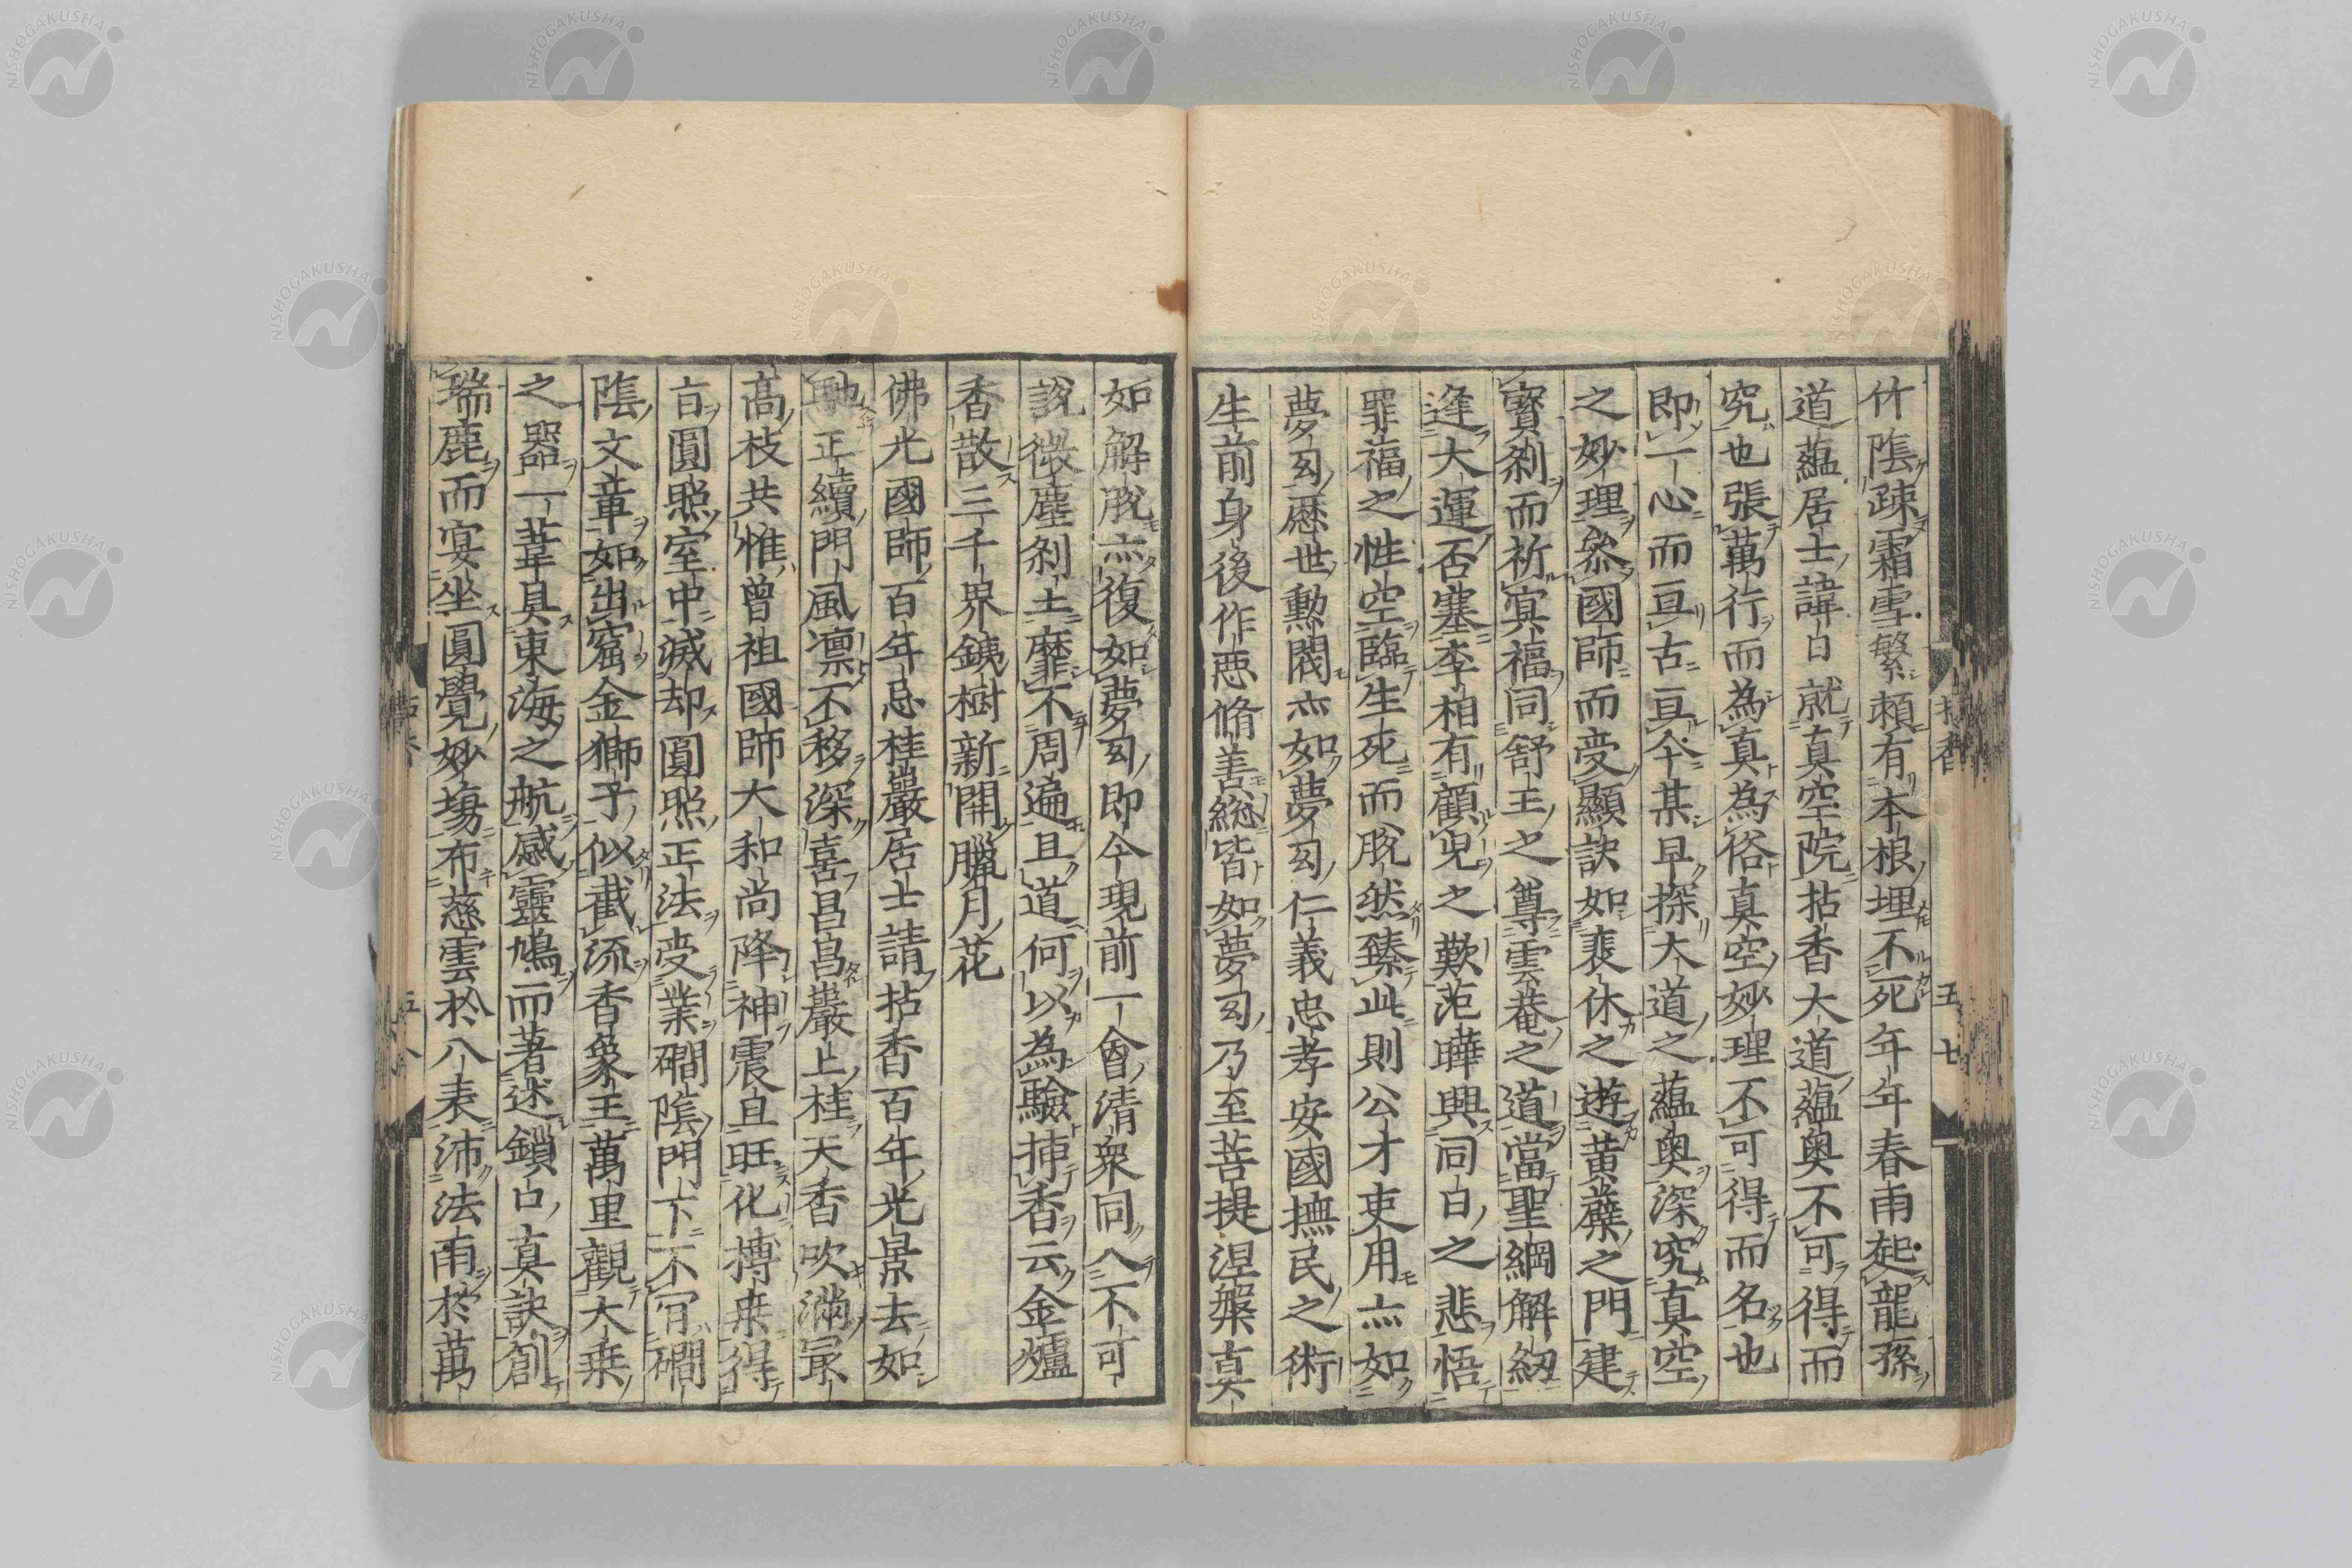 竹陰疎霜雪繁頼有本根埋不死年年春雨起龍孫
道蘊居士諱日就真空院拈香大道蘊奥不可得而
究也張萬行而為真為俗真空妙理不可得而名也
即一心而亘古亘今某早探大道之蘊奥深究真空
之妙理叅國師而受顯訣如裴休之遊黄蘗之門建
寶刹而祈冥福同舒王之尊雲菴之道當聖綱解紉
逢大運否塞李相有顧兒之歎范曄興同日之悲悟
罪福之性空臨生死而脱然臻此則公才吏用亦如
夢幻歴世勲閥亦如夢幻仁義忠孝安國撫民之術
生前身後作悪脩善総皆如夢幻乃至菩提涅槃真
如解脱亦復如夢幻即今現前一會清衆同入不可
説微塵刹土靡不周遍且道何以為驗挿香云金爐
香散三千界銕樹新開臘月花
佛光國師百年忌桂巖居士請拈香百年光景去如
馳正續門風凛不移深喜昌昌巖上桂天香吹満冣
髙枝共惟曾祖國師大和尚降神震旦旺化摶桒得
㫖圓照室中滅却圓照正法受業磵陰門下不肯磵
陰文章如出窟金獅子似截流香象王萬里觀大乗
之器一葦具東海之航感靈鳩而著述鎖口真訣創
瑞鹿而宴坐圓覺妙場布慈雲於八表沛法雨於萬
拈香
五七
五八
NISHOGAKUSHA